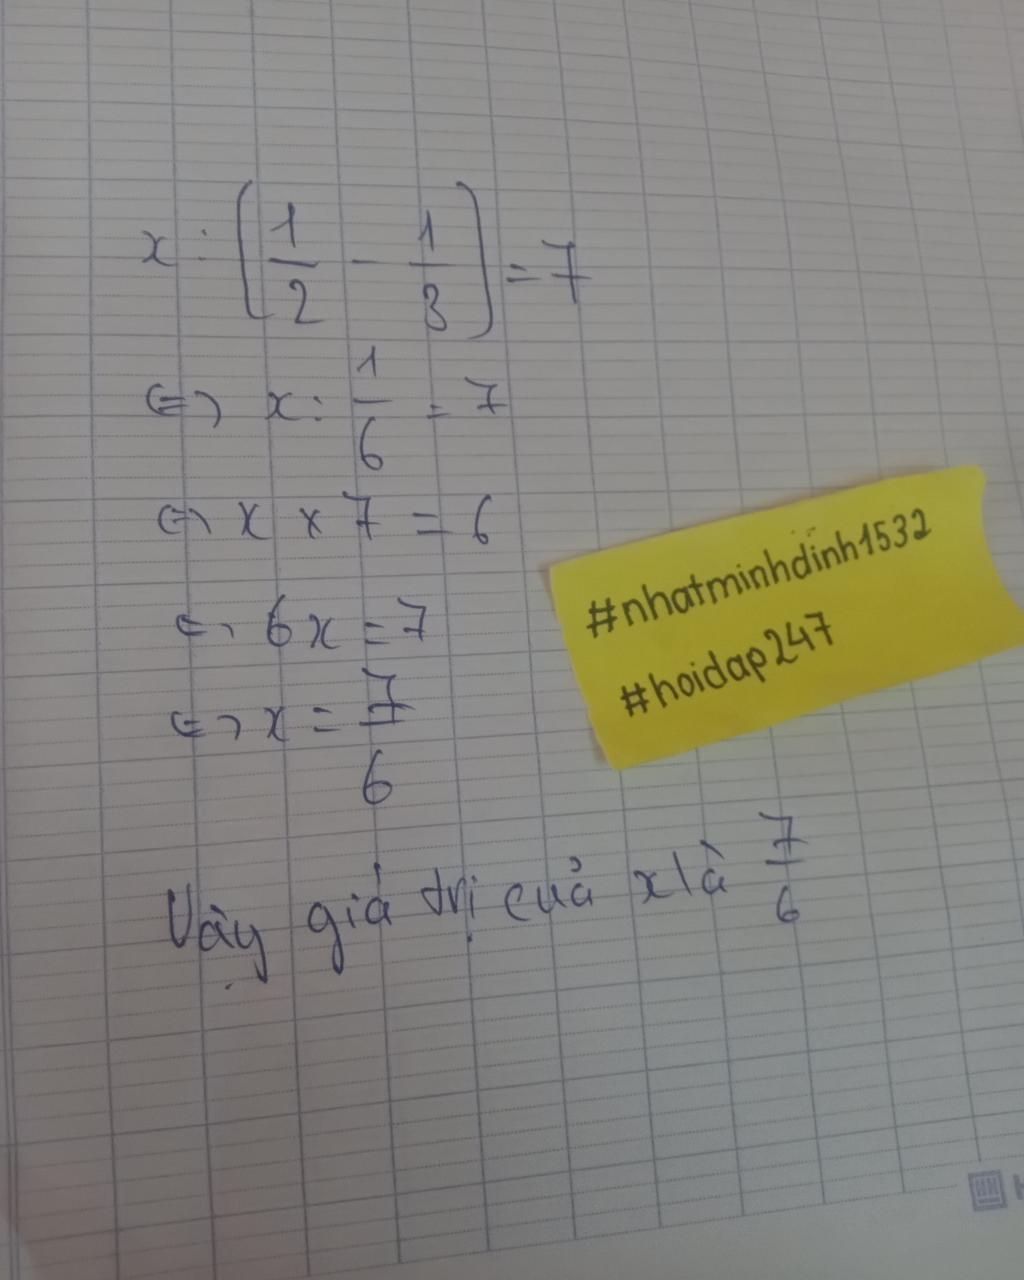 x : (1/2 - 1/3) = 7
⇔ x : 1/6 = 7
⇔ x × 7 = 6
⇔ 6x = 7
⇔ x = 7/6
Vậy giá trị cuả x là 7/6
#nhatminhdinh1532
#hoidap247